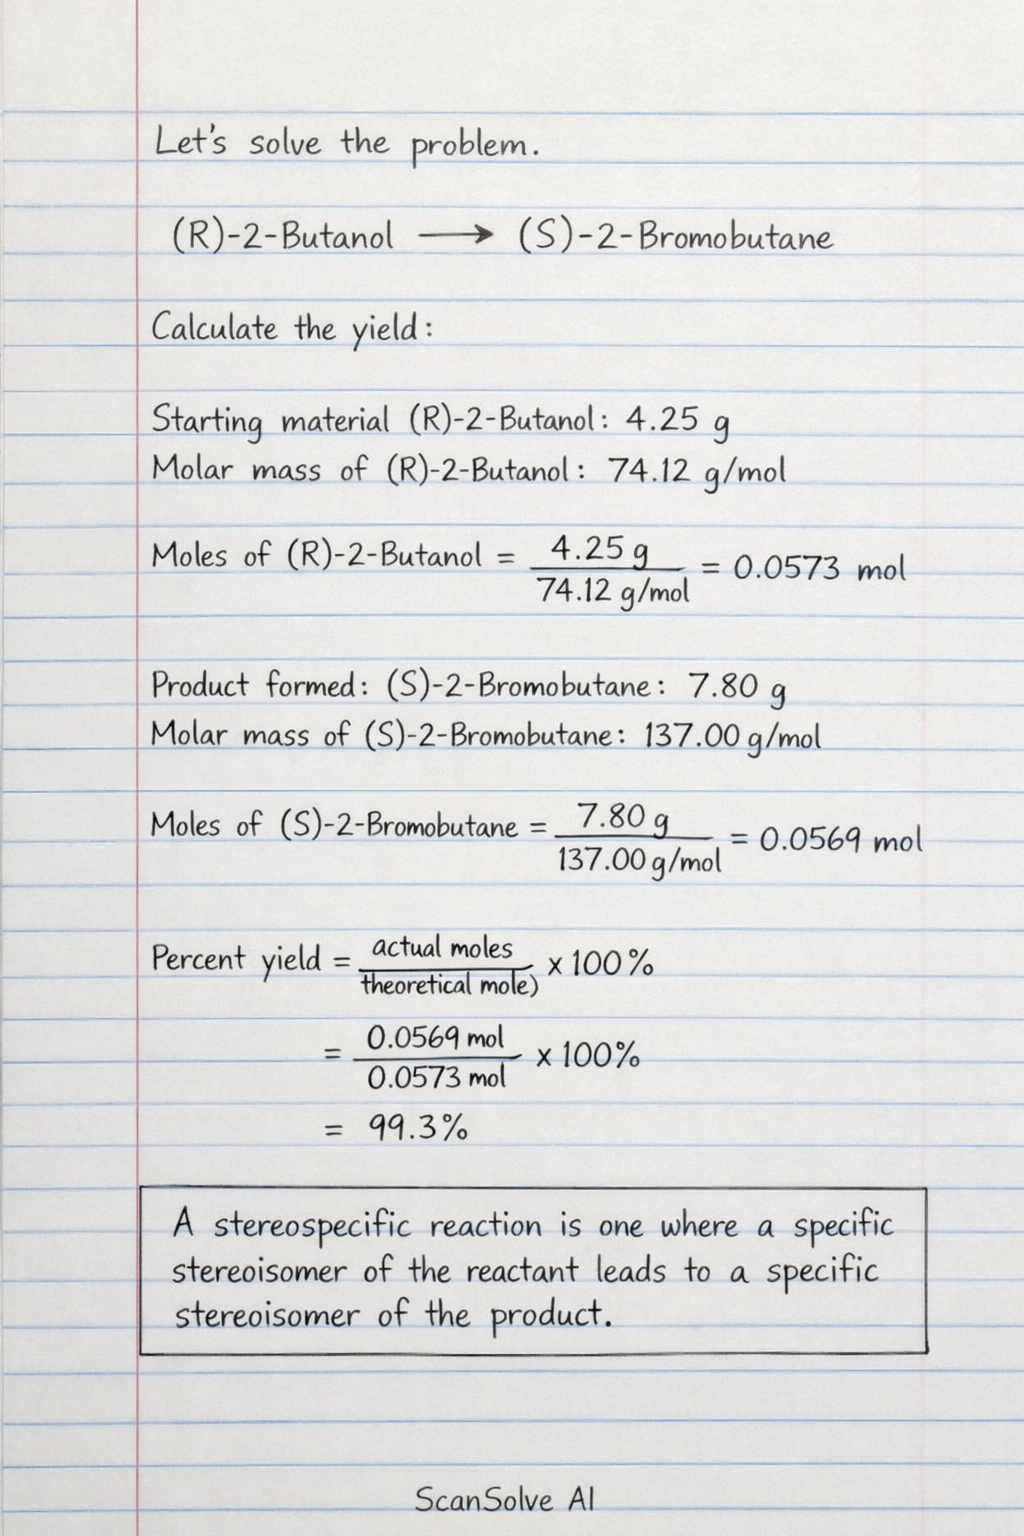 Let's solve the problem.
(R)-2-Butanol ⟶ (S)-2-Bromobutane
Calculate the yield:
Starting material (R)-2-Butanol: 4.25 g
Molar mass of (R)-2-Butanol: 74.12 g/mol
Moles of (R)-2-Butanol = 4.25 g / 74.12 g/mol = 0.0573 mol
Product formed: (S)-2-Bromobutane: 7.80 g
Molar mass of (S)-2-Bromobutane: 137.00 g/mol
Moles of (S)-2-Bromobutane = 7.80 g / 137.00 g/mol = 0.0569 mol
Percent yield = actual moles / theoretical mole) x 100%
= 0.0569 mol / 0.0573 mol x 100%
= 99.3%
A stereospecific reaction is one where a specific
stereoisomer of the reactant leads to a specific
stereoisomer of the product.
ScanSolve AI